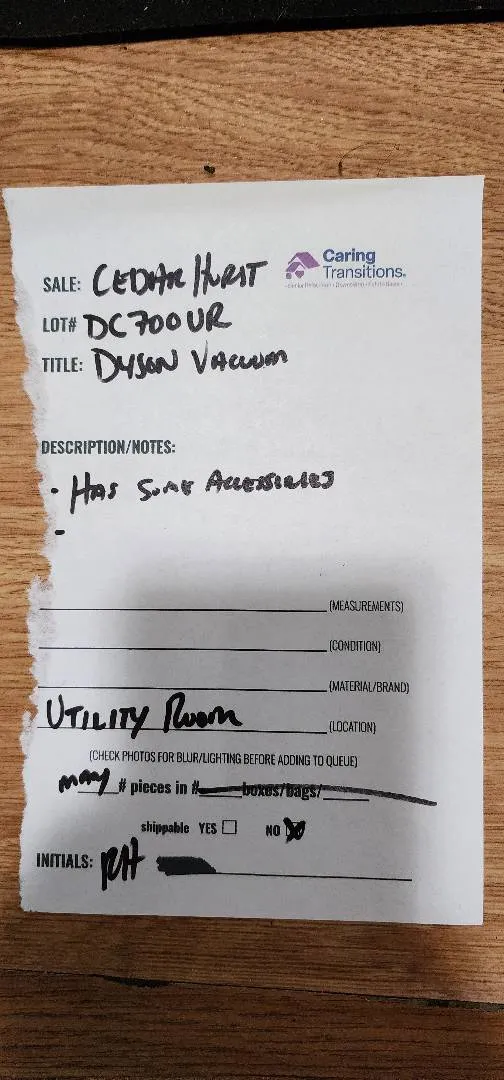 Caring
Transitions®
SALE: CEDAR HURST
LOT# DC700UR
TITLE: DYSON VACUUM
DESCRIPTION/NOTES:
· HAS SOME ACCESSORIES
-
(MEASUREMENTS)
(CONDITION)
(MATERIAL/BRAND)
UTILITY ROOM (LOCATION)
(CHECK PHOTOS FOR BLUR/LIGHTING BEFORE ADDING TO QUEUE)
many # pieces in # boxes/bags/
shippable YES ☐ NO ☒
INITIALS: RH